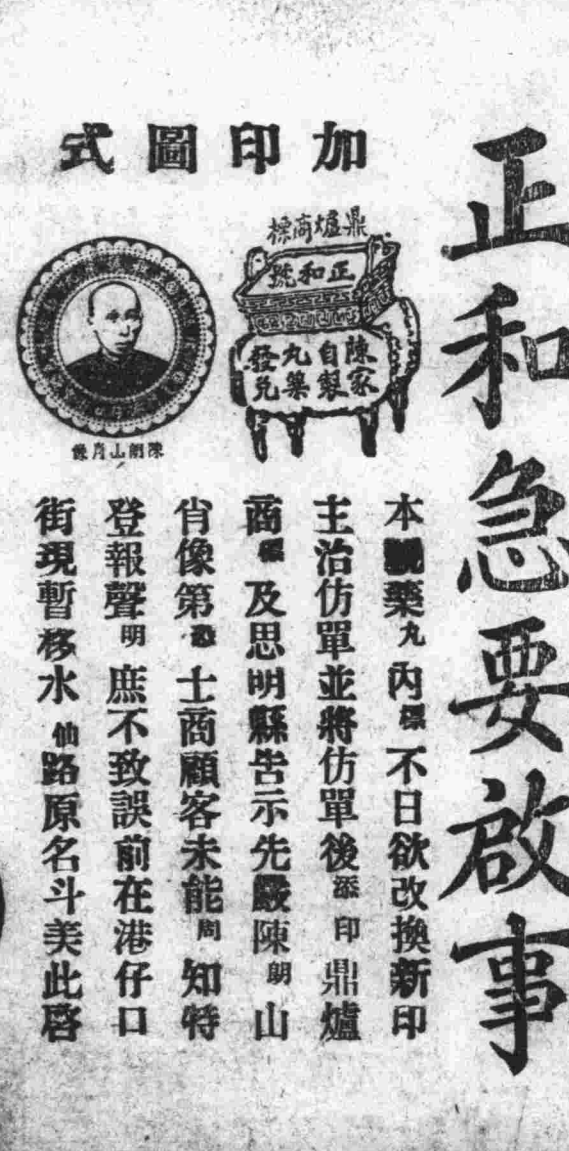 正和急要啟事
加印圖式
鼎爐商標
正和號
陳家
自製
丸藥
發兌
陳朗山肖像
本號藥丸內標不日欲改換新印
主治仿單並將仿單後添印鼎爐
商標及思明縣告示先嚴陳朗山
肖像第恐士商顧客未能周知特
登報聲明庶不致誤前在港仔口
街現暫移水仙路原名斗美此啓